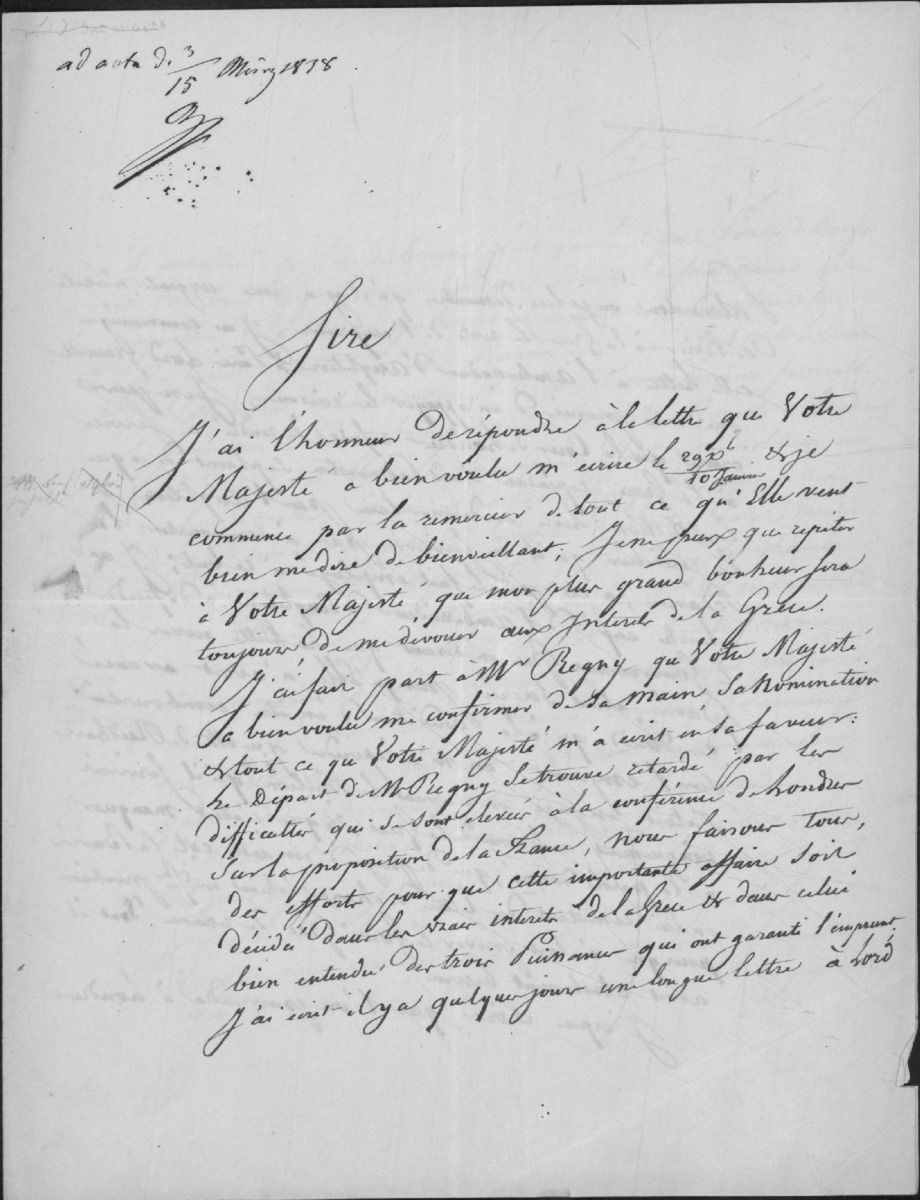 ad acta d. 3/15 März 1838
Sire
J'ai l'honneur de répondre à la lettre que Votre
Majesté a bien voulu m'écrire le 29 Xbre/10 Janvier & je
commence par la remercier de tout ce qu'Elle veut
bien me dire de bienveillant; Je ne peux que répéter
à Votre Majesté que mon plus grand bonheur sera
toujours de me dévouer aux Interets de la Grece.
J'ai fait part à Mr Regny que Votre Majesté
a bien voulu me confirmer de sa main sa Nomination
& tout ce que Votre Majesté m'a ecrit en sa faveur:
Le Départ de Mr Regny se trouve retardé par les
difficultés qui se sont elevées à la conférence de Londres
sur la proposition de la France, nous faisons tous,
des efforts pour que cette importante affaire soit
décidée dans les vrais interets de la Grece & dans celui
bien entendu des trois Puissances qui ont garanti l'emprunt.
J'ai ecrit il y a quelques jours une longue lettre à Lord